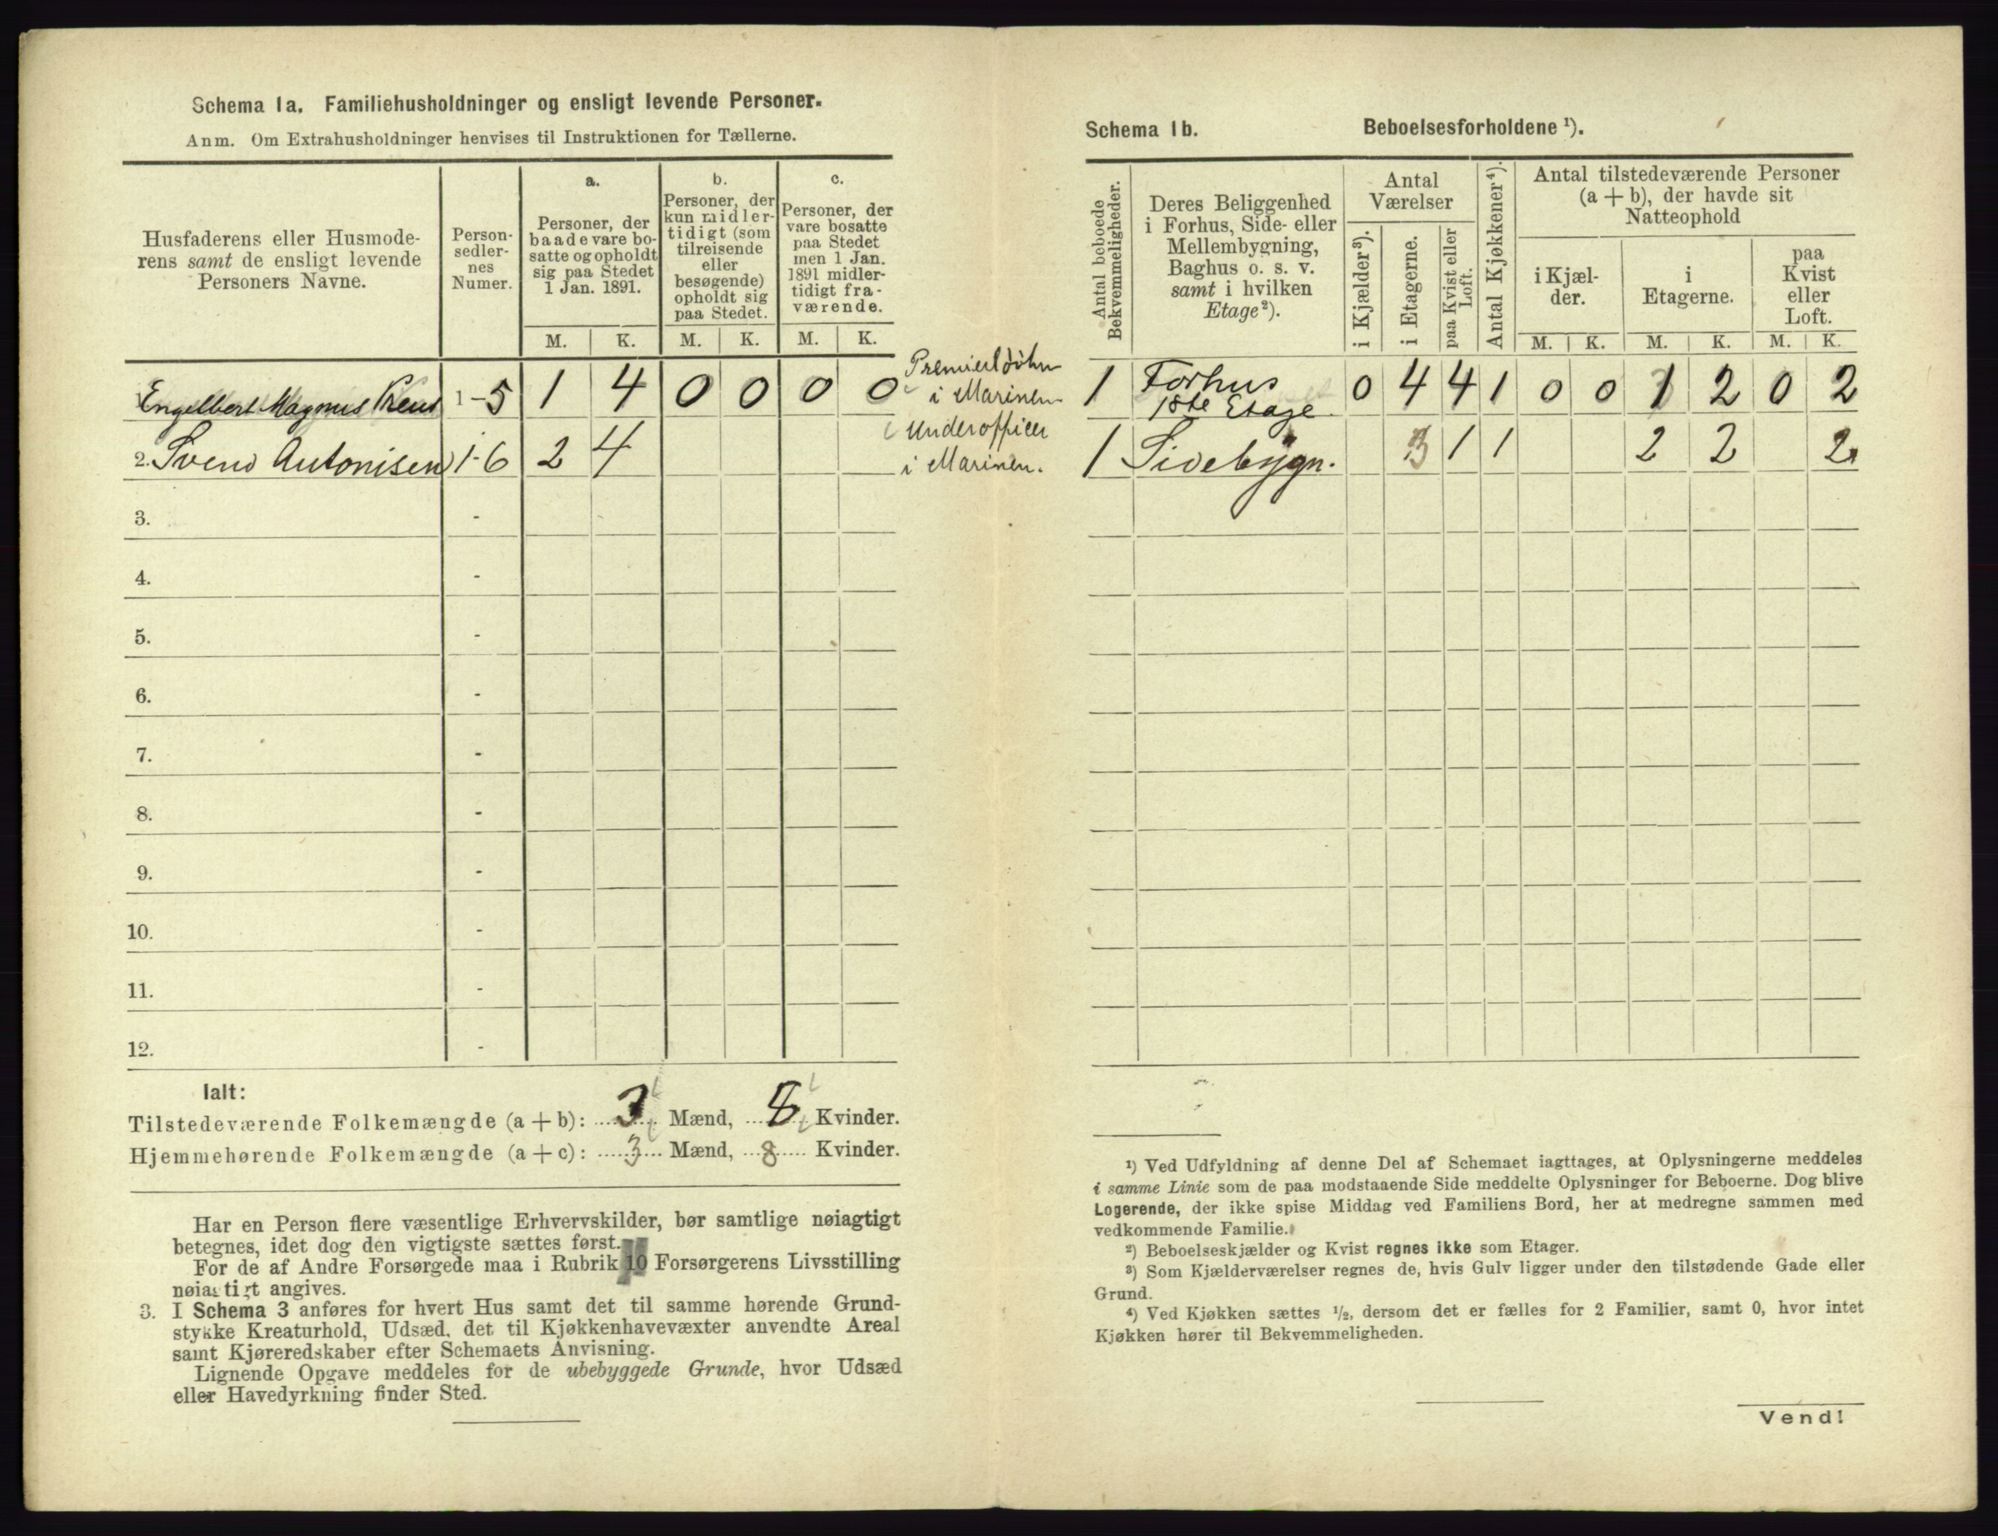 Schema 1a. Familiehusholdninger og ensligt levende Personer.
Anm. Om Extrahusholdninger henvises til Instruktionen for Tællerne.
Husfaderens eller Husmode-
rens samt de ensligt levende
Personers Navne.
Person-
sedler-
nes
Numer.
a.
Personer, der
baade vare bo-
satte og opholdt
sig paa Stedet
1 Jan. 1891.
b.
Personer, der
kun midler-
tidigt (som
tilreisende
eller
besøgende)
opholdt sig
paa Stedet.
c.
Personer, der
vare bosatte
paa Stedet
men 1 Jan.
1891 midler-
tidigt fra-
værende.
M. K. M. K. M. K.
Engelbert Magnus 1-5 1 4 0 0 0 0
Premierløitn
i Marinen.
2. Svend Antonisen 1-6 2 4
Underofficer
i Marinen.
3. -
4. -
5. -
6. -
7. -
8. -
9. -
10. -
11. -
12. -
Ialt:
Tilstedeværende Folkemængde (a + b): 3 Mænd, 8 Kvinder.
Hjemmehørende Folkemængde (a + c): 3 Mænd, 8 Kvinder.
Har en Person flere væsentlige Erhvervskilder, bør samtlige nøiagtigt
betegnes, idet dog den vigtigste sættes først.
For de af Andre Forsørgede maa i Rubrik 10 Forsørgerens Livsstilling
nøiagtigt angives.
3. I Schema 3 anføres for hvert Hus samt det til samme hørende Grund-
stykke Kreaturhold, Udsæd, det til Kjøkkenhavevæxter anvendte Areal
samt Kjøreredskaber efter Schemaets Anvisning.
Lignende Opgave meddeles for de ubebyggede Grunde, hvor Udsæd
eller Havedyrkning finder Sted.
Schema 1b. Beboelsesforholdene ¹).
Antal beboede
Bekvemmeligheder.
Deres Beliggenhed
i Forhus, Side- eller
Mellembygning,
Baghus o. s. v.
samt i hvilken
Etage²).
Antal
Værelser
i Kjælder³).
i Etagerne.
paa Kvist eller
Loft.
Antal Kjøkkener⁴).
Antal tilstedeværende Personer
(a + b), der havde sit
Natteophold
i Kjæl-
der.
i
Etagerne.
paa
Kvist
eller
Loft.
M. K. M. K. M. K.
1 Forhus 0 4 4 1 0 0 1 2 0 2
1ste Etage
1 Sidebygn. 3 1 1 2 2 2
¹) Ved Udfyldning af denne Del af Schemaet iagttages, at Oplysningerne meddeles
i samme Linie som de paa modstaaende Side meddelte Oplysninger for Beboerne. Dog blive
Logerende, der ikke spise Middag ved Familiens Bord, her at medregne sammen med
vedkommende Familie.
²) Beboelseskjælder og Kvist regnes ikke som Etager.
³) Som Kjælderværelser regnes de, hvis Gulv ligger under den tilstødende Gade eller
Grund.
⁴) Ved Kjøkken sættes ½, dersom det er fælles for 2 Familier, samt 0, hvor intet
Kjøkken hører til Bekvemmeligheden.
Vend!